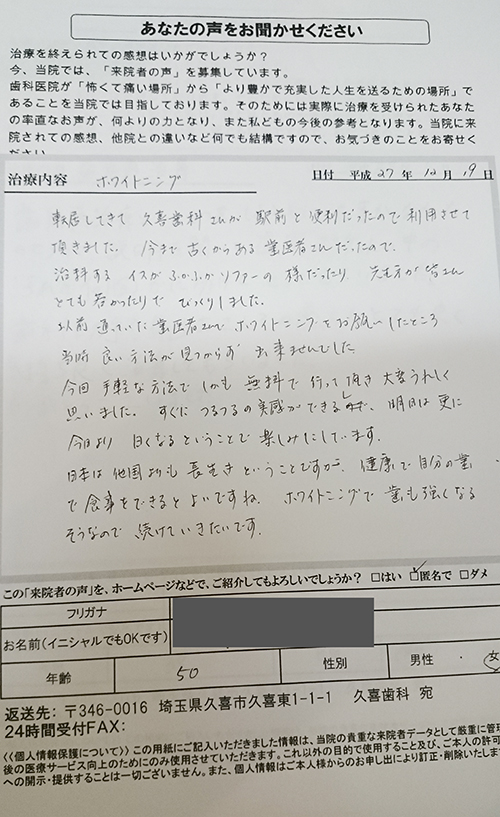 あなたの声をお聞かせください
治療を終えられての感想はいかがでしょうか？
今、当院では、「来院者の声」を募集しています。
歯科医院が“怖くて痛い場所”から“より豊かで充実した人生を送るための場所”で
あることを当院では目指しております。そのためには実際に治療を受けられたあなた
の率直なお声が、何よりの力となり、また私どもの今後の参考となります。当院に来
院されての感想、他院との違いなど何でも結構ですので、お気づきのことをお寄せく
ださい
治療内容 ホワイトニング 日付 平成 27 年 12 月 19 日
転居してきて 久喜歯科さんが 駅前と便利だったので利用させて
頂きました。今まで古くからある 歯医者さんだったので、
治料する イスがふかふかソファーの様だったり 先生方が皆さん
とても若かったりで びっくりしました。
以前 通っていた歯医者さんで ホワイトニングをお願いしたところ
当時 良い方法が見つからず 出来ませんでした。
今回 手軽な方法でしかも 無料で行って頂き大変うれしく
思いました。すぐにつるつるの実感ができるし、明日は更に
今日より 白くなるということで楽しみにしています。
日本は他国よりも 長生きということですが、健康で自分の歯
で食事をできるとよいですね。ホワイトニングで歯も強くなる
そうなので 続けていきたいです。
この「来院者の声」を、ホームページなどで、ご紹介してもよろしいでしょうか？ □はい ☑匿名で □ダメ
フリガナ
お名前(イニシャルでもOKです)
年齢 50 性別 男性 ・ 女
返送先：〒346-0016 埼玉県久喜市久喜東1-1-1 久喜歯科 宛
24時間受付FAX：
《個人情報保護について》この用紙にご記入いただきました情報は、当院の貴重な来院者データとして厳重に管理
後の医療サービス向上のためにのみ使用させていただきます。これ以外の目的で使用すること及び、ご本人の許可
への開示・提供することは一切ございません。また、個人情報はご本人様からのお申し出により訂正・削除いたしま